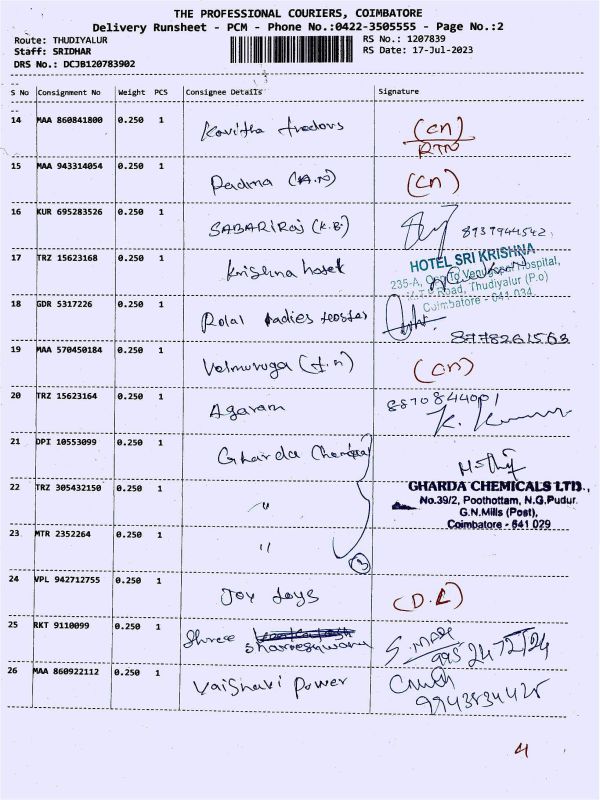 THE PROFESSIONAL COURIERS, COIMBATORE
Delivery Runsheet - PCM - Phone No.:0422-3505555 - Page No.:2
Route: THUDIYALUR RS No.: 1207839
Staff: SRIDHAR RS Date: 17-Jul-2023
DRS No.: DCJB120783902
S No Consignment No Weight PCS Consignee Details Signature
14 MAA 860841800 0.250 1 Kavitha (cn)
RTN
15 MAA 943314054 0.250 1 Padma (A.N) (cn)
16 KUR 695283526 0.250 1 SABARIRaj (K.B) 8937944542
17 TRZ 15623168 0.250 1 Krishna hotel
HOTEL SRI KRISHNA
235-A, Opp To Hospital,
Road, Thudiyalur (P.o)
Coimbatore - 641 034
18 GDR 5317226 0.250 1 ladies 8778261563
19 MAA 570450184 0.250 1 Velmuruga (cn)
20 TRZ 15623164 0.250 1 Agaram 8870844001
K. Kumar
21 DPI 10553099 0.250 1 Gharda Chemical
22 TRZ 305432150 0.250 1 "
GHARDA CHEMICALS LTD.,
No.39/2, Poothottam, N.G.Pudur.
G.N.Mills (Post),
Coimbatore - 641 029
23 MTR 2352264 0.250 1 "
3
24 VPL 942712755 0.250 1 Joy Joys (D.L)
25 RKT 9110099 0.250 1 Shree
26 MAA 860922112 0.250 1 Vaishnavi Power
9943834425
4